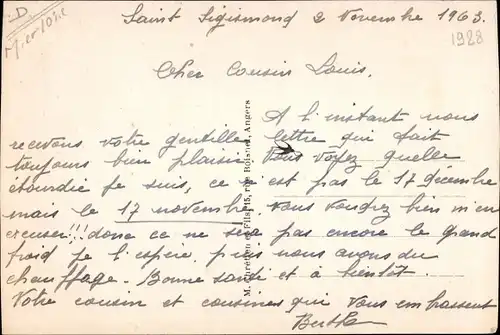 D
Saint Sigismond 2 Novembre 1963.
1928
Cher Cousin Louis,
A l'instant nous
recevons votre gentille lettre qui fait
toujours bien plaisir Vous voyez quelle
étourdie je suis, ce n'est pas le 17 décembre
mais le 17 novembre. Vous voudrez bien m'en
excuser!!! donc ce ne sera pas encore le grand
froid je l'espère, puis nous avons du
chauffage. Bonne santé et à bientôt.
Votre cousin et cousines qui vous embrassent
Berthe
M. Chrétien & Fils, 15, rue Boisnet, Angers